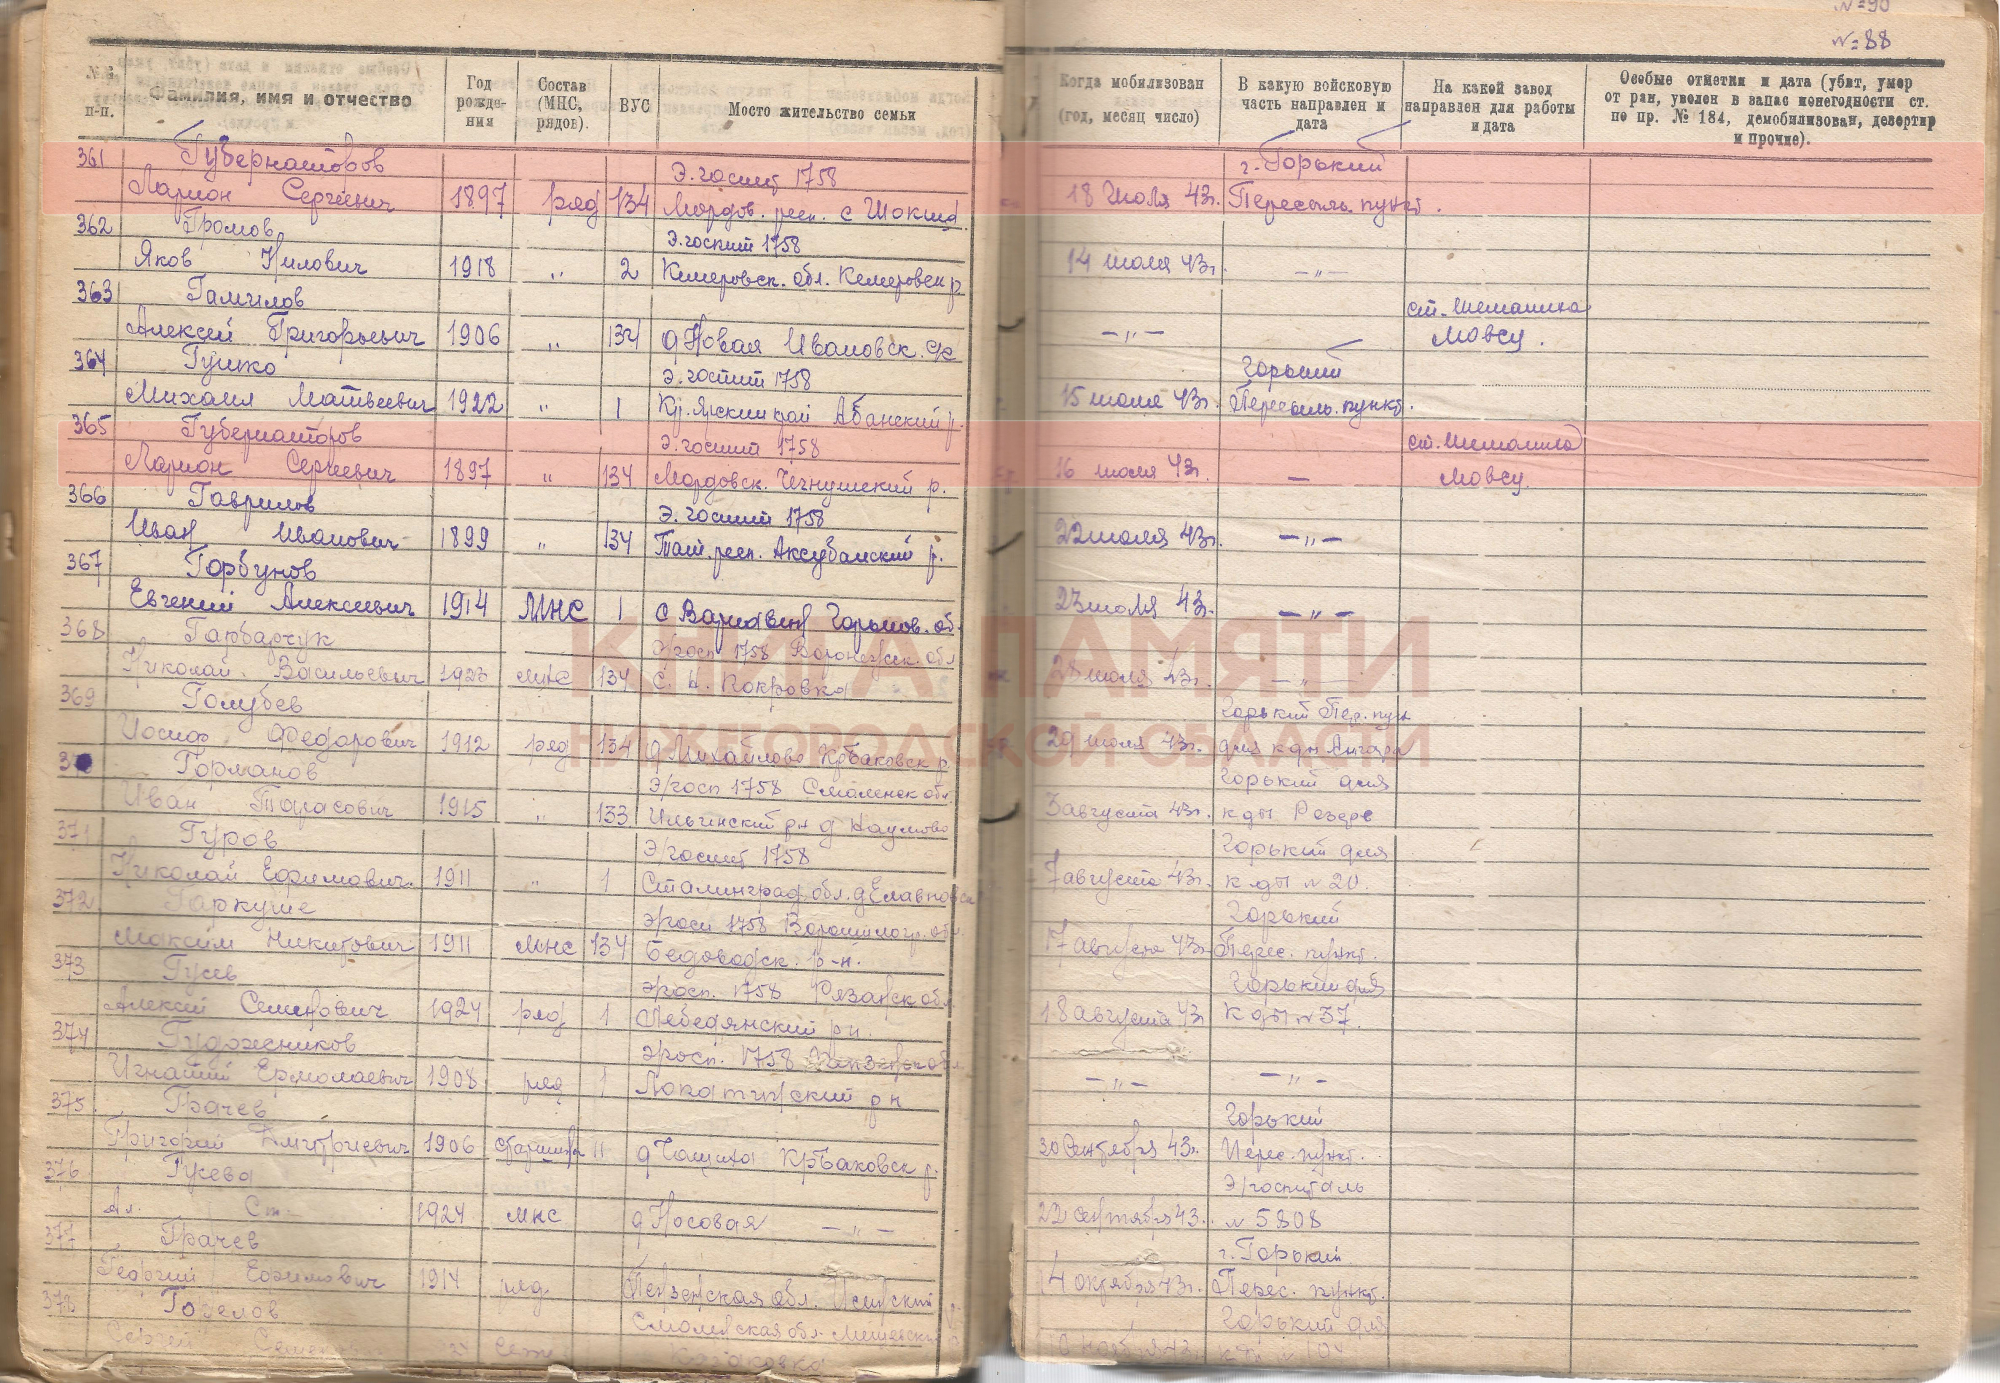 № 90
№ 88
№№ п-п.
Фамилия, имя и отчество
Год рожде- ния
Состав (МНС, рядов).
ВУС
Мосто жительство семьи
Когда мобилизован (год, месяц число)
В какую войсковую часть направлен и дата
На какой завод направлен для работы и дата
Особые отметки и дата (убит, умер от ран, уволен в запас по негодности ст. по пр. № 184, демобилизован, дезертир и прочие).
361 Губернаторов Э. госпит 1758 г. Горький
Ларион Сергеевич 1897 ряд 134 Мордов. респ. с Шокша 18 Июля 43г. Пересыль. пункт.
362 Громов Э. госпит 1758
Яков Нилович 1918 „ 2 Кемеровск. обл. Кемеровск р 14 июля 43г. — „ —
363 Гамилов ст. Шеманиха
Алексей Григорьевич 1906 „ 134 д Новая Ивановск. — „ — Мовсу.
364 Гушко Э. госпит 1758 Горький
Михаил Матвеевич 1922 „ 1 Кр. Ярский край Абанский р. 15 июля 43г. Пересыль. пункт.
365 Губернаторов Э. госпит 1758 ст. Шеманиха
Ларион Сергеевич 1897 „ 134 Мордовск. р. 16 июля 43г. — Мовсу.
366 Гаврилов Э. госпит 1758
Иван Иванович 1899 „ 134 Тат. респ. Аксубаиский р. 22 июля 43г. — „ —
367 Горбунов
Евгений Алексеевич 1914 МНС 1 с Варнавин Горьков. об. 23 июля 43г. — „ —
368 Э/госп 1758 Воронежск. обл
Николай Васильевич 1923 МНС 134 с. Н. Покровка 28 июля 43г. — „ —
369 Голубев Горький Пер. пун
Иосиф Федорович 1912 ряд 134 д Михайлово Кр Баковск р 29 июля 43г. для к-ды Ангара
Горманов Э/госп 1758 Смоленск обл. Горький для
Иван Тарасович 1915 „ 133 Ильинский рн д Наумово 3 августа 43г. к-ды
371 Гуров Э/госпит 1758 Горький для
Николай Ефимович. 1911 „ 1 Сталинград. обл. 7 августа 43г. к-ды № 20.
372 Гаркуше Э/госп 1758 Ворошиловгр. обл. Горький
Максим Никитович 1911 МНС 134 Беловодск. р-н. 17 августа 43г. Перес. пункт.
373 Гусев Э/госп. 1758 Рязанск обл. Горький для
Алексей Семенович 1924 ряд 1 Лебедянский рн. 18 августа 43г К-ды № 37.
374 Гудожсников Э/госп. 1758 Пензенск обл
Игнатий Ермолаевич 1908 ряд 1 Лопатинский рн — „ — — „ —
375 Грачев Горький
Григорий Дмитриевич 1906 старшина 11 д Чащиха Кр Баковск р. 30 Сентября 43г. Перес. пункт.
376 Гусева Э/госпиталь
Ал. Ст. 1924 МНС д Носовая — „ — 22 сентября 43. № 5808
377 Грачев г. Горький
Георгий Ефимович 1914 ряд. Пензенская обл. 4 октября 43г. Перес. пункт.
378 Горелов Смоленская обл. Горький для
Сергей
КНИГА ПАМЯТИ
НИЖЕГОРОДСКОЙ ОБЛАСТИ